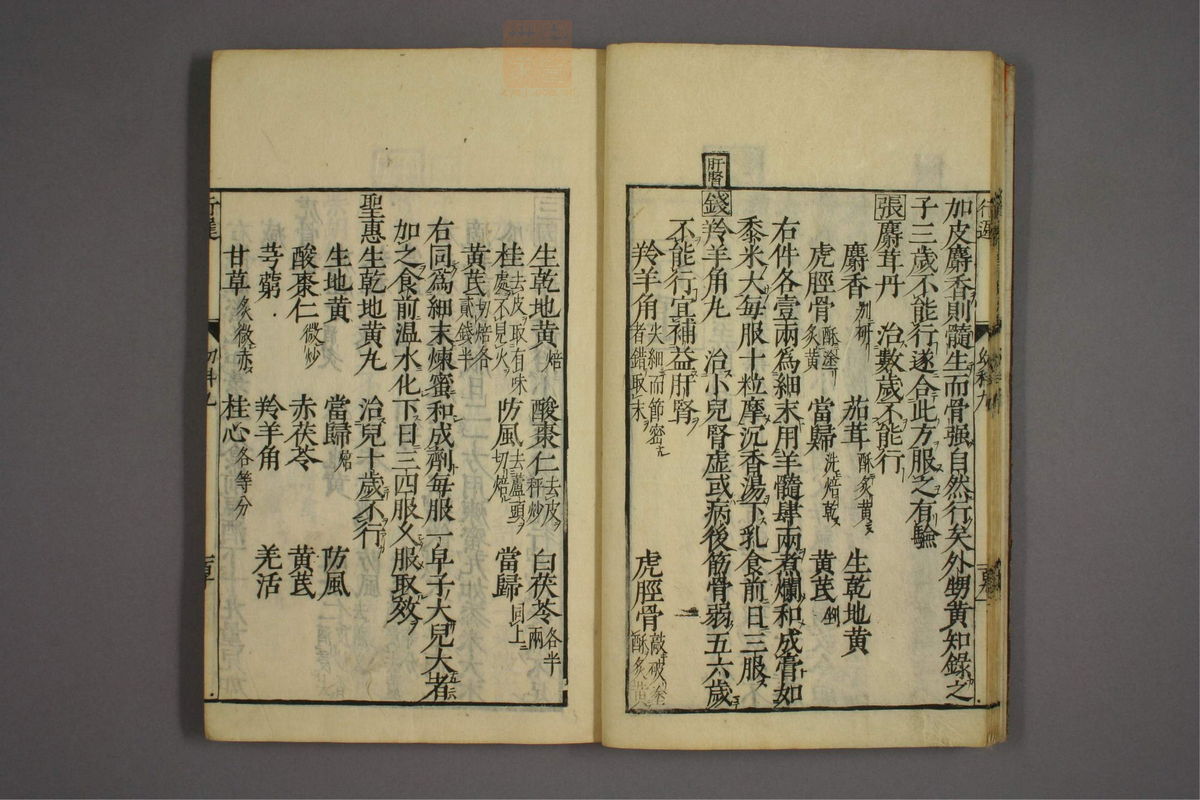 加皮麝香則髓生而骨强自然行矣外甥黃知錄之
子三歲不能行遂合此方服之有驗
張麝茸丹 治數歲不能行
麝香別研 茄茸酥炙黄 生乾地黄
虎脛骨酥塗炙黄 當歸洗焙乾 黄芪剉
右件各壹兩爲細末用羊髓肆兩煮爛和成膏如
黍米大每服十粒摩沉香湯下乳食前日三服
肝腎
錢羚羊角丸 治小兒腎虚或病後筋骨弱五六歲
不能行宜補益肝腎
羚羊角尖細而節密者錯取末 虎脛骨敲破塗酥炙黄
生乾地黄焙 酸棗仁去皮秤炒 白茯苓各半兩
桂去皮取有味處不見火 防風去蘆頭切焙 當歸同上
黄芪切焙各貳錢半
右同爲細末煉蜜和成劑每服一皁子大兒大者
加之食前温水化下日三四服久服取效
聖惠生乾地黄丸 治兒十歲不行
生地黄 當歸焙 防風
酸棗仁微炒 赤茯苓 黄芪
芎藭 羚羊角 羌活
甘草炙微赤 桂心各等分